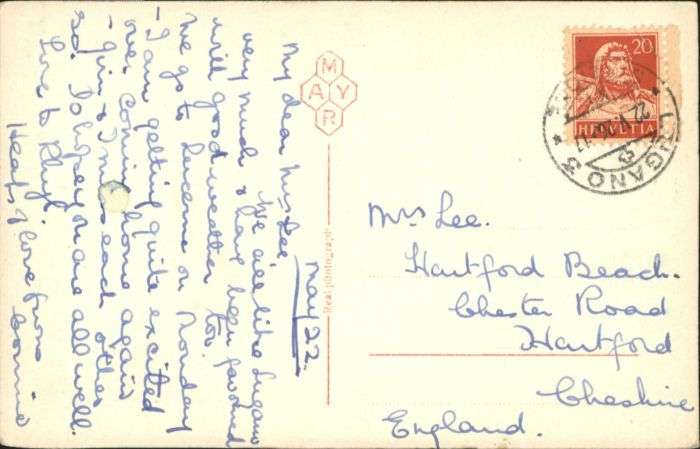 May 22.
My dear Mrs Lee,
We all like Lugano
very much & have been favoured
with good weather too.
We go to Lucerne on Monday
- I am getting quite excited
over coming home again
- Jim & I miss each other
so. Do hope you are all well.
Love to Rhyl.
Heaps of love from
MAYR
Real photograph
20
HELVETIA
LUGANO 3
Mrs Lee.
Hartford Beach.
Chester Road
Hartford
Cheshire
England.